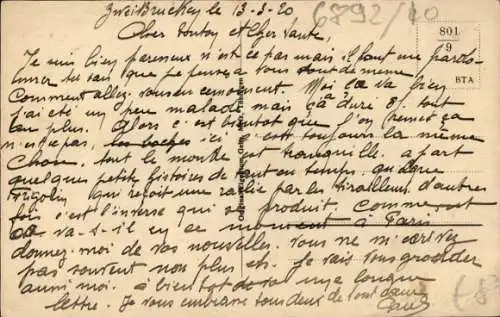 Zweibrucken le 13-3-20
6892/20
Cher tonton et Cher tante,
801
9
BTA
Je suis bien paresseux n'est ce pas mais il faut me pardo-
nner tu sais que je pense a vous tout de meme
Comment allez vous en ce moment. Moi ça va bien
j'ai été un peu malade mais ça a duré 8 j. tout
au plus. Alors c'est bientot que l'on remet ça
n'est ce pas, les boches ici, c'est toujours la même
Chose, tout le monde est tranquille. a part
quelques petite histoires de tout au temps. quelque
Frigolin qui reçoit une raclée par les tirailleurs d'autres
fois c'est l'inverse qui se produit. Comment
ça va-t-il en ce moment à Paris
donnez-moi de vos nouvelles. Vous ne m'ecrivez
pas souvent non plus eh. Je vais vous gronder
aussi moi. à bientot de vous une longue
lettre. Je vous embrasse tous deux de tout